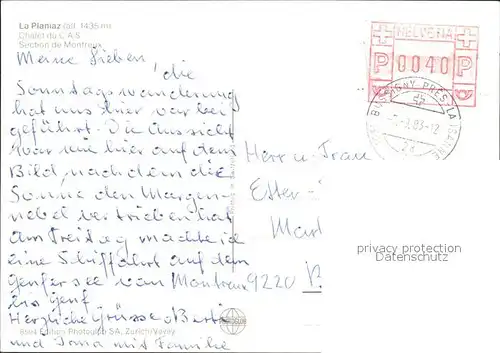 La Planiaz (alt. 1435 m)
Chalet du C.A.S.
Section de Montreux
Meine Lieben,
die
Sonntagswanderung
hat uns hier vorbei
geführt. Die Aussicht
war wie hier auf dem
Bild, nachdem die
Sonne den Morgen-
nebel vertrieben hat
Am Freitag machte ich
eine Schiffahrt auf dem
Genfersee von Montreux
bis Genf
Herzliche Grüsse Berti
und Irma mit Familie
Edition Photoglob SA, Zürich/Vevey
HELVETIA
P 0040 P
BUSSIGNY-PRÈS-LAUSANNE
Herr u. Frau
9220
privacy protection
Datenschutz